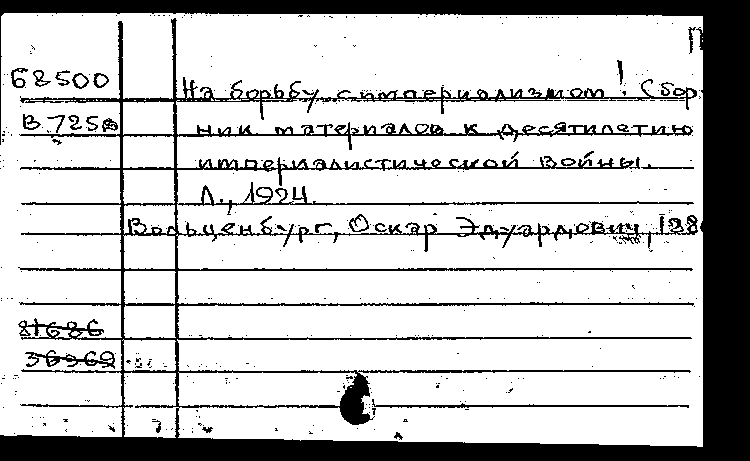 П
62500 На борьбу с империализмом! Сбор-
В 725 ник материалов к десятилетию
империалистической войны.
Л., 1924.
Вольценбург, Оскар Эдуардович, 188
81686
36969